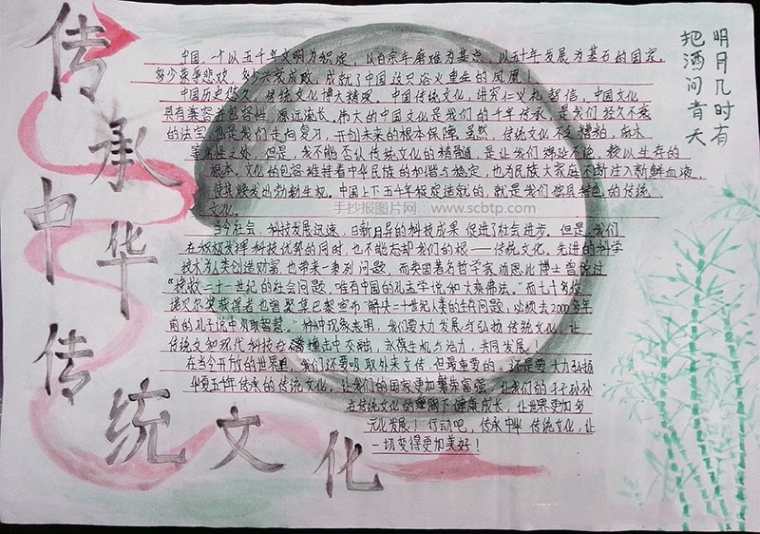 传承中华传统文化
明月几时有
把酒问青天
中国,一个以五千年文明为积淀,以百余年磨难为基点,以五十年发展为基石的国家。
多少荣辱悲欢,多少兴衰成败,成就了中国这只浴火重生的凤凰!
中国历史悠久,传统文化博大精深。中国传统文化,讲究仁义礼智信,中国文化
具有兼容并包容性,源远流长。伟大的中国文化是我们的千年传承,是我们经久不衰
的法宝,也是我们走向复习,开创未来的根本保障。虽然,传统文化不乏糟粕,麻木
等消极之处,但是,我不能否认传统文化的精髓,是让我们绵延至今,赖以生存的
根本。文化的包容维持着中华民族的和谐与稳定,也为民族大家庭不断注入新鲜血液,
使其焕发出勃勃生机。中国上下五千年积淀造就的,就是我们独具特色的传统
文化。
手抄报图片网 www.scbtp.com
当今社会,科技发展迅速,日新月异的科技成果促进了社会进步。但是,我们
在积极发挥科技优势的同时,也不能忘却我们的根——传统文化。先进的科学
技术为人类创造财富,也带来一系列问题,而英国著名哲学家汤恩比博士曾说过
"挽救二十一世纪的社会问题,唯有中国的孔孟学说和大乘佛法。"而七十多位
诺贝尔奖获得者也曾聚集巴黎宣布"解决二十世纪人类的生存问题,必须去2000多年
前的孔子说中汲取智慧。"种种现象表明,我们要大力发展与弘扬传统文化,让
传统文和现代科技在撞击中交融,永葆生机与活力,共同发展!
在当今开放的世界里,我们还要吸取外来文传,但最重要的,还是要大力弘扬
华夏五千年传承的传统文化,让我们的国家更加繁荣富强,让我们的子子孙孙
在传统文化的下健康成长,让世界更加多
元化发展!行动吧,传承中华传统文化,让
一切变得更加美好!